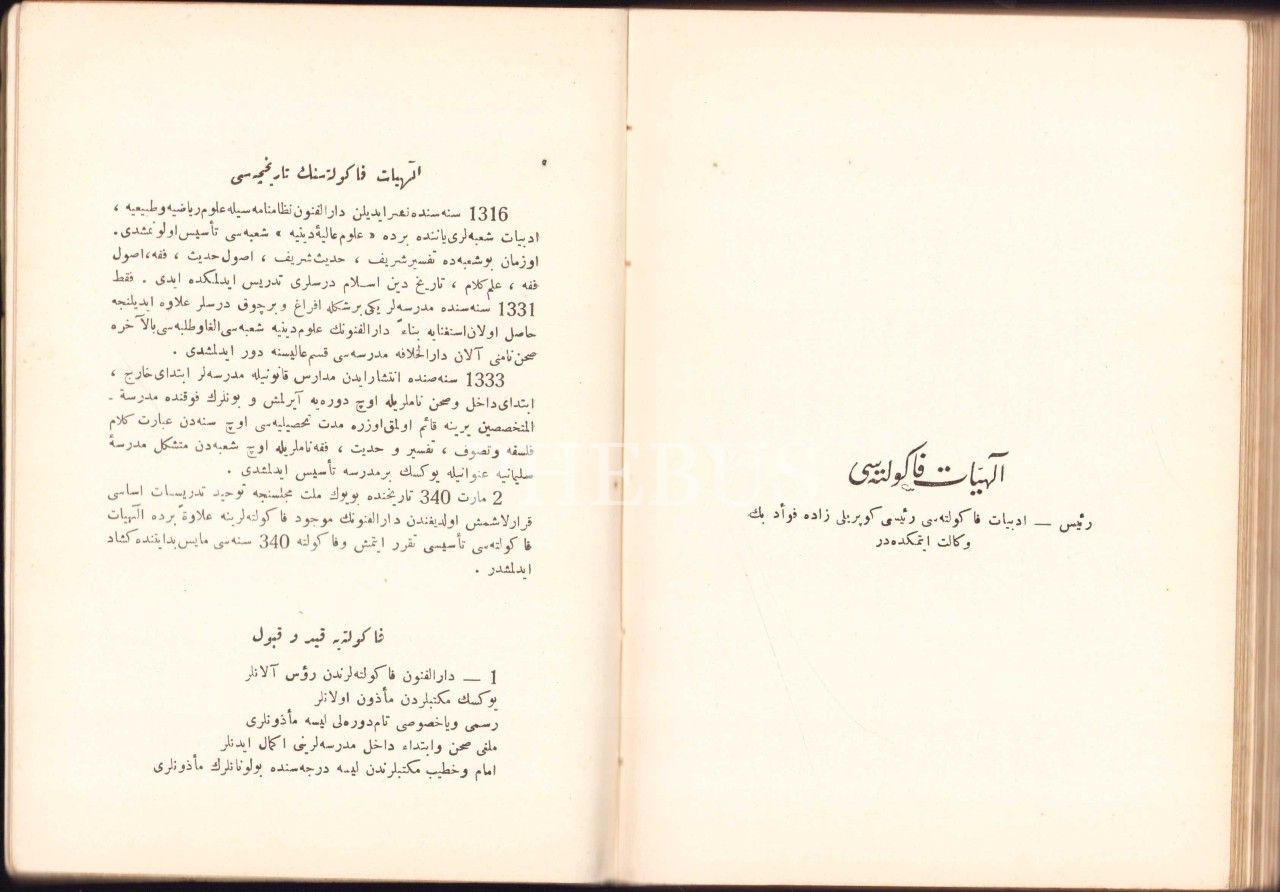 الٓهیات فاكولته‌سی
رئیس — ادبیات فاكولته‌سی رئیسی كوپریلی زاده فوأد بك
وكالت ایتمكده‌در
الٓهیات فاكولته‌سنك تاریخچه‌سی
1316 سنه‌سنده نشر ایدیلن دارالفنون نظامنامه سیله علوم ریاضیه و طبیعیه ،
ادبیات شعبه لری یاننده برده « علوم عالیهٔ دینیه » شعبه‌سی تأسیس اولونمشدی.
اوزمان بوشعبه‌ده تفسیر شریف ، حدیث شریف ، اصول حدیث ، فقه، اصول
فقه ، علم كلام ، تاریخ دین اسلام درسلری تدریس ایدلمكده ایدی . فقط
1331 سنه‌سنده مدرسه‌لر یكی برشكله افراغ و برچوق درسلر علاوه ایدیلنجه
حاصل اولان استغنایه بناءً دارالفنونك علوم دینیه شعبه‌سی الغا وطلبه‌سی بالآخره
صحن نامنی آلان دارالخلافه مدرسه‌سی قسم عالیسنه دور ایدلمشدی .
1333 سنه‌صنده انتشار ایدن مدارس قانونیله مدرسه‌لر ابتدای خارج ،
ابتدای داخل وصحن ناملریله اوچ دوره‌یه آیرلمش و بونلرك فوقنده مدرسة ـ
المتخصصین یرینه قائم اولمق اوزره مدت تحصیلیه‌سی اوچ سنه‌دن عبارت كلام
فلسفه و تصوف ، تفسیر و حدیث ، فقه ناملریله اوچ شعبه‌دن متشكل مدرسهٔ
سلیمانیه عنوانیله یوكسك برمدرسه تأسیس ایدلمشدی .
2 مارت 340 تاریخنده بویوك ملت مجلسنجه توحید تدریسات اساسی
قرارلاشمش اولدیغندن دارالفنونك موجود فاكولته‌لرینه علاوةً برده الٓهیات
فاكولته‌سی تأسیسی تقرر ایتمش وفاكولته 340 سنه‌سی مایس بدایتنده كشاد
ایدلمشدر .
فاكولته‌یه قید و قبول
1 — دارالفنون فاكولته‌لرندن رؤس آلانلر
یوكسك مكتبلردن مأذون اولانلر
رسمی ویاخصوصی تام دوره‌لی لیسه مأذونلری
ملغی صحن وابتداء داخل مدرسه‌لرینی اكمال ایدنلر
امام وخطیب مكتبلرندن لیسه درجه‌سنده بولونانلرك مأذونلری
HEBYS